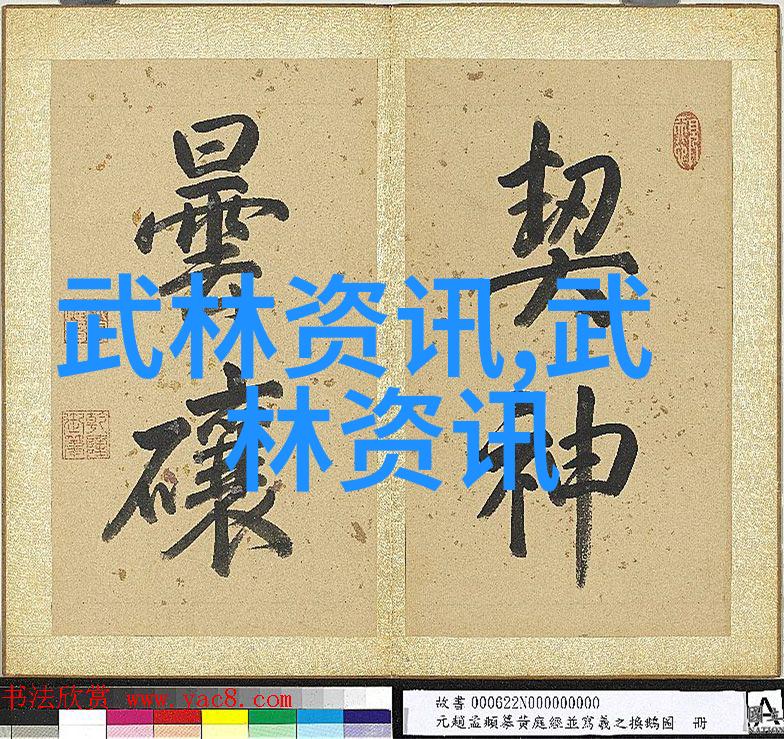 契神
曇
武林资讯,武
林资讯
书法欣赏 www.yac8.com
故書000622N000000000
元趙孟頫摹黃庭經並寫羲之換鵝圖 冊